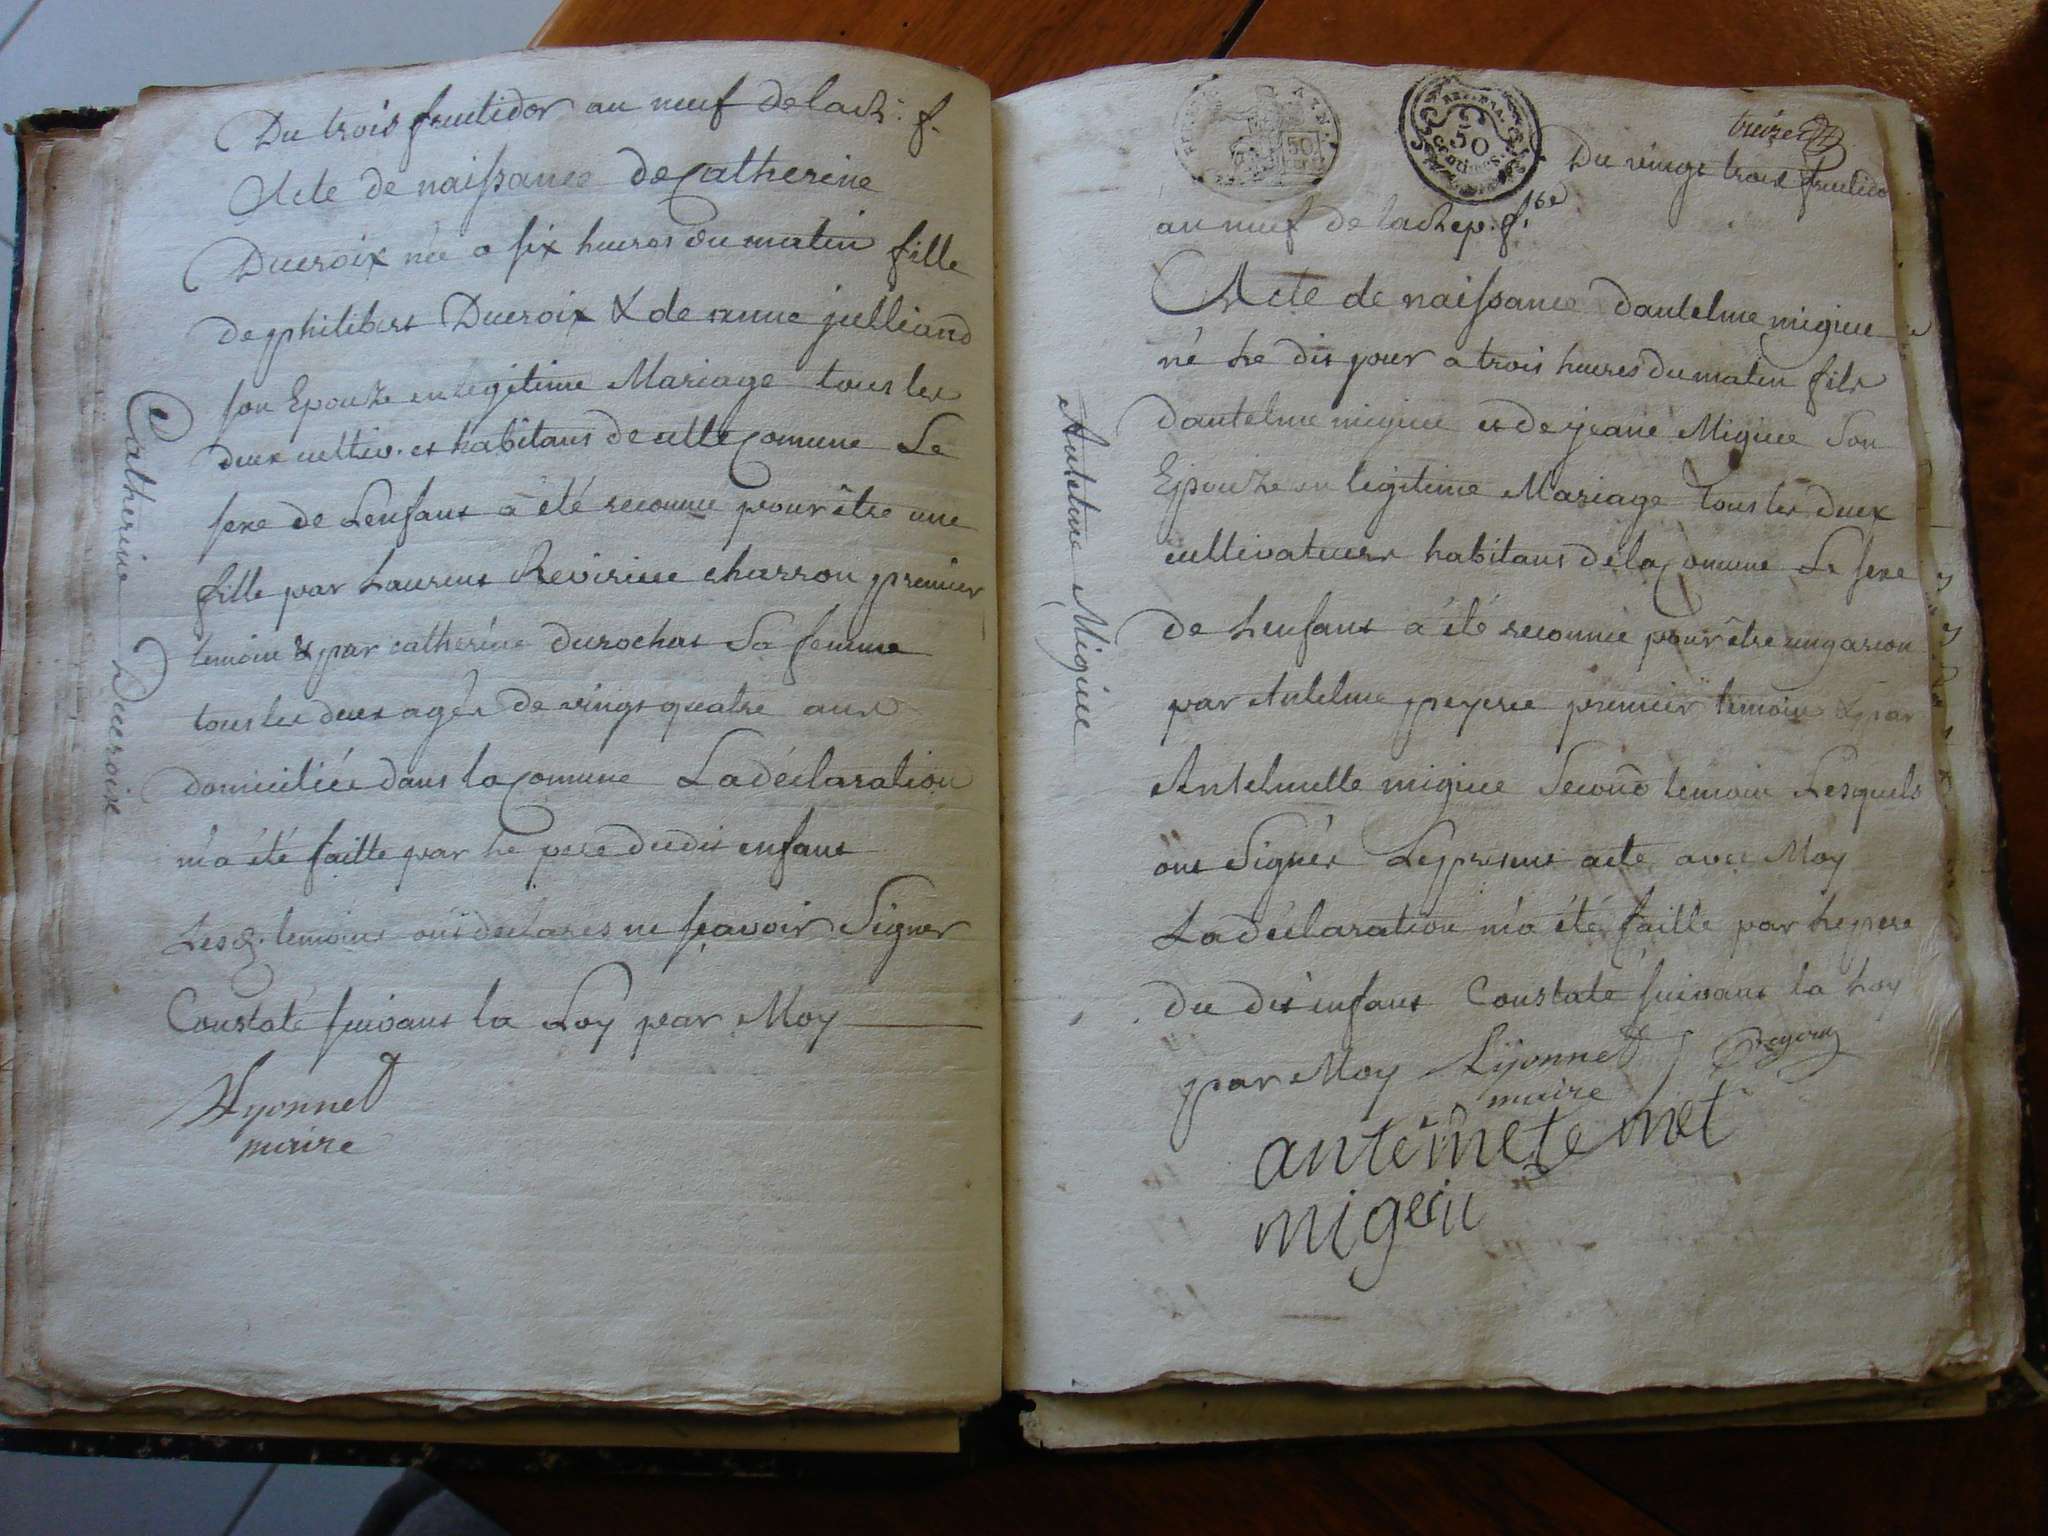 Du trois fructidor an neuf de la R. f.
Acte de naissance de Catherine
Ducroix née a six heures du matin fille
de philibert Ducroix & de anne julliand
son Epouze en legitime Mariage tous les
deux cultiv. et habitans de cette Comune Le
sexe de L'enfant a été reconnu pour être une
fille par Laurent charron premier
temoin & par catherine durochat Sa femme
tous les deux agés de vingt quatre ans
domiciliés dans la Comune La déclaration
m'a été faitte par le pere du dit enfant
Lesq. temoins ont déclarés ne sçavoir Signer
Constaté suivant la Loy par Moy
Lyonnet
maire
Catherine Ducroix
50
REP. FRA.
50
Centimes
treize
Du vingt trois fructido
an neuf de la Rep. f.se
Acte de naissance d'antelme migieu
né le dit jour a trois heures du matin fils
d'antelme migieu et de jeane Migieu Son
Epouze en legitime Mariage tous les deux
cultivateurs habitans de la Comune Le sexe
de L'enfant a été reconnu pour être un garcon
par Antelme peyere premier temoin & par
Antelmette migieu Second temoin Lesquels
ont Signés Le present acte avec Moy
La déclaration m'a été faitte par le pere
du dit enfant Constaté suivant la Loy
par Moy Lyonnet
maire
antemete met
migeiu
Antelme Migieu